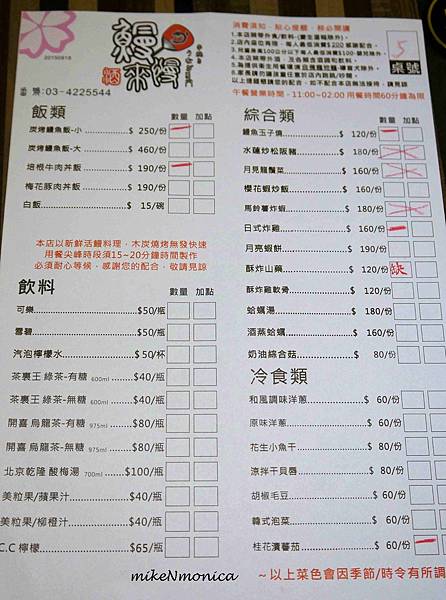 20150918
鰻來慢
消費須知，貼心提醒，務必閱讀
5
桌號
電:03-4225544
午餐營業時間 - 11:00~02:00 用餐時間60分鐘為限
飯類
數量 加點
炭烤鰻魚飯-小 $ 250/份
炭烤鰻魚飯-大 $ 460/份
培根牛肉丼飯 $ 190/份
梅花豚肉丼飯 $ 190/份
白飯 $ 15/碗
本店以新鮮活鰻料理，木炭燒烤無發快速
用餐尖峰時段須15~20分鐘時間製作
必須耐心等候，感謝您的配合，敬請見諒
飲料
數量 加點
可樂 $50/瓶
雪碧 $50/瓶
汽泡檸檬水 $50/杯
茶裏王 綠茶-有糖 600ml $40/瓶
茶裏王 綠茶-無糖 600ml $40/瓶
開喜 烏龍茶-有糖 975ml $80/瓶
開喜 烏龍茶-無糖 975ml $80/瓶
北京乾隆 酸梅湯 700ml $100/瓶
美粒果/蘋果汁 $40/瓶
美粒果/柳橙汁 $40/瓶
C.C 檸檬 $65/瓶
綜合類
數量 加點
鰻魚玉子燒 $ 120/份
水蓮炒松阪豬 $ 180/份
月見龍鬚菜 $ 160/份
櫻花蝦炒飯 $ 160/份
馬鈴薯炸蝦 $ 180/份
日式炸雞 $ 160/份
月亮蝦餅 $ 190/份
酥炸山藥 $ 120/份
酥炸雞軟骨 $ 120/份
蛤蠣湯 $ 180/份
酒蒸蛤蠣 $ 160/份
奶油綜合菇 $ 80/份
冷食類
數量 加點
和風調味洋蔥 $ 60/份
原味洋蔥 $ 60/份
花生小魚干 $ 80/份
涼拌干貝唇 $ 80/份
胡椒毛豆 $ 60/份
韓式泡菜 $ 60/份
桂花漬蕃茄 $ 60/份
~以上菜色會因季節/時令有所調
mikeNmonica